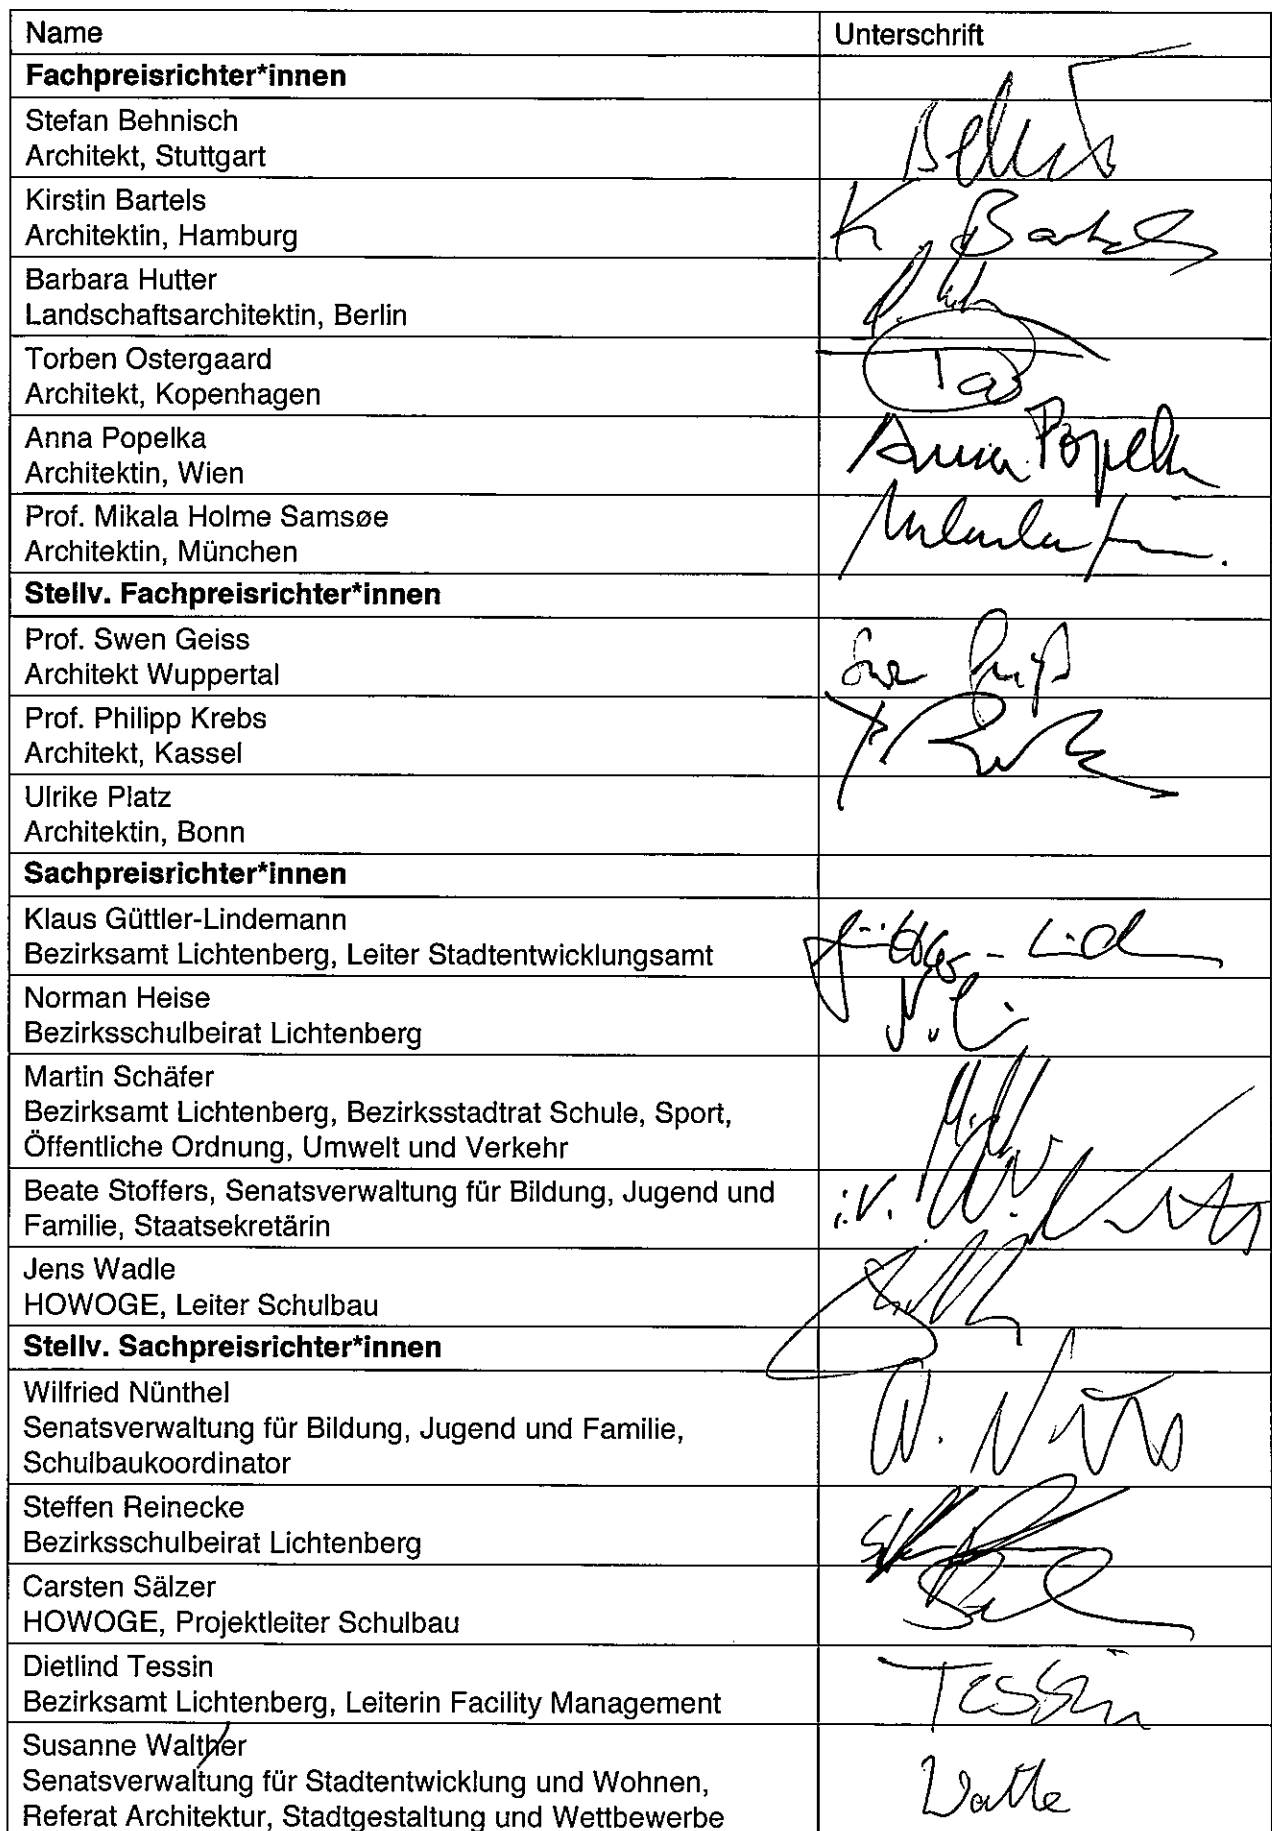 Name Unterschrift
Fachpreisrichter*innen
Stefan Behnisch
Architekt, Stuttgart
Kirstin Bartels
Architektin, Hamburg
K. Bartels
Barbara Hutter
Landschaftsarchitektin, Berlin
Torben Ostergaard
Architekt, Kopenhagen
Anna Popelka
Architektin, Wien
Anna Popelka
Prof. Mikala Holme Samsøe
Architektin, München
Stellv. Fachpreisrichter*innen
Prof. Swen Geiss
Architekt Wuppertal
Prof. Philipp Krebs
Architekt, Kassel
Ulrike Platz
Architektin, Bonn
Sachpreisrichter*innen
Klaus Güttler-Lindemann
Bezirksamt Lichtenberg, Leiter Stadtentwicklungsamt
Norman Heise
Bezirksschulbeirat Lichtenberg
Martin Schäfer
Bezirksamt Lichtenberg, Bezirksstadtrat Schule, Sport,
Öffentliche Ordnung, Umwelt und Verkehr
Beate Stoffers, Senatsverwaltung für Bildung, Jugend und
Familie, Staatsekretärin
i.V.
Jens Wadle
HOWOGE, Leiter Schulbau
Stellv. Sachpreisrichter*innen
Wilfried Nünthel
Senatsverwaltung für Bildung, Jugend und Familie,
Schulbaukoordinator
Steffen Reinecke
Bezirksschulbeirat Lichtenberg
Carsten Sälzer
HOWOGE, Projektleiter Schulbau
Dietlind Tessin
Bezirksamt Lichtenberg, Leiterin Facility Management
Tessin
Susanne Walther
Senatsverwaltung für Stadtentwicklung und Wohnen,
Referat Architektur, Stadtgestaltung und Wettbewerbe